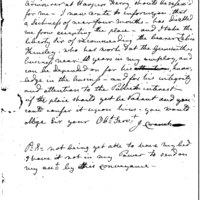 Armourer at Harpers Ferry should be given
for me - I am Sir to inform you that
a sickness of near four months - has disabled
me from accepting the place - and I take the
liberty Sir of recommending the bearer
who has work'd at the
near 10 years in my employ, and
can be depended on for his know-
ledge in the business - and for his integrity
and attention to the Publick interest -
if the place should yet be vacant and you
can confer it upon him - you would
oblige Sir your Obt Servt
P.S. not being yet able to leave my bed
I have it not in my Power to send on
my acct by this conveyance -